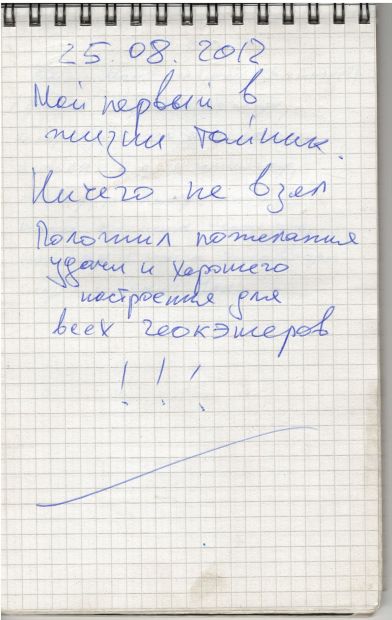 25.08.2012
Мой первый в
жизни тайник.
Ничего не взял
Положил пожелания
удачи и хорошего
настроения для
всех геокэшеров
!!!